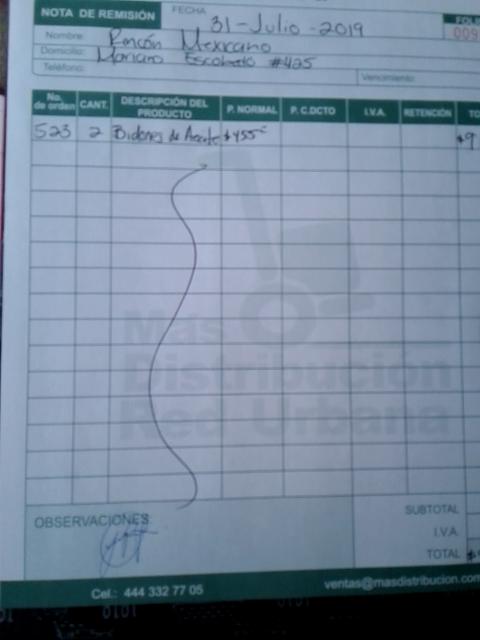 NOTA DE REMISIÓN FECHA 31-Julio-2019 FOLIO
009
Nombre: Rincón Mexicano
Domicilio: Mariano Escobedo #425
Teléfono: Vencimiento:
No. de orden CANT. DESCRIPCIÓN DEL PRODUCTO P. NORMAL P. C.DCTO I.V.A. RETENCIÓN TO
523 2 Bidones de Aceite $455 $9
Más
Distribución
Red Urbana
OBSERVACIONES:
SUBTOTAL
I.V.A.
TOTAL $
Cel.: 444 332 77 05 ventas@masdistribucion.com